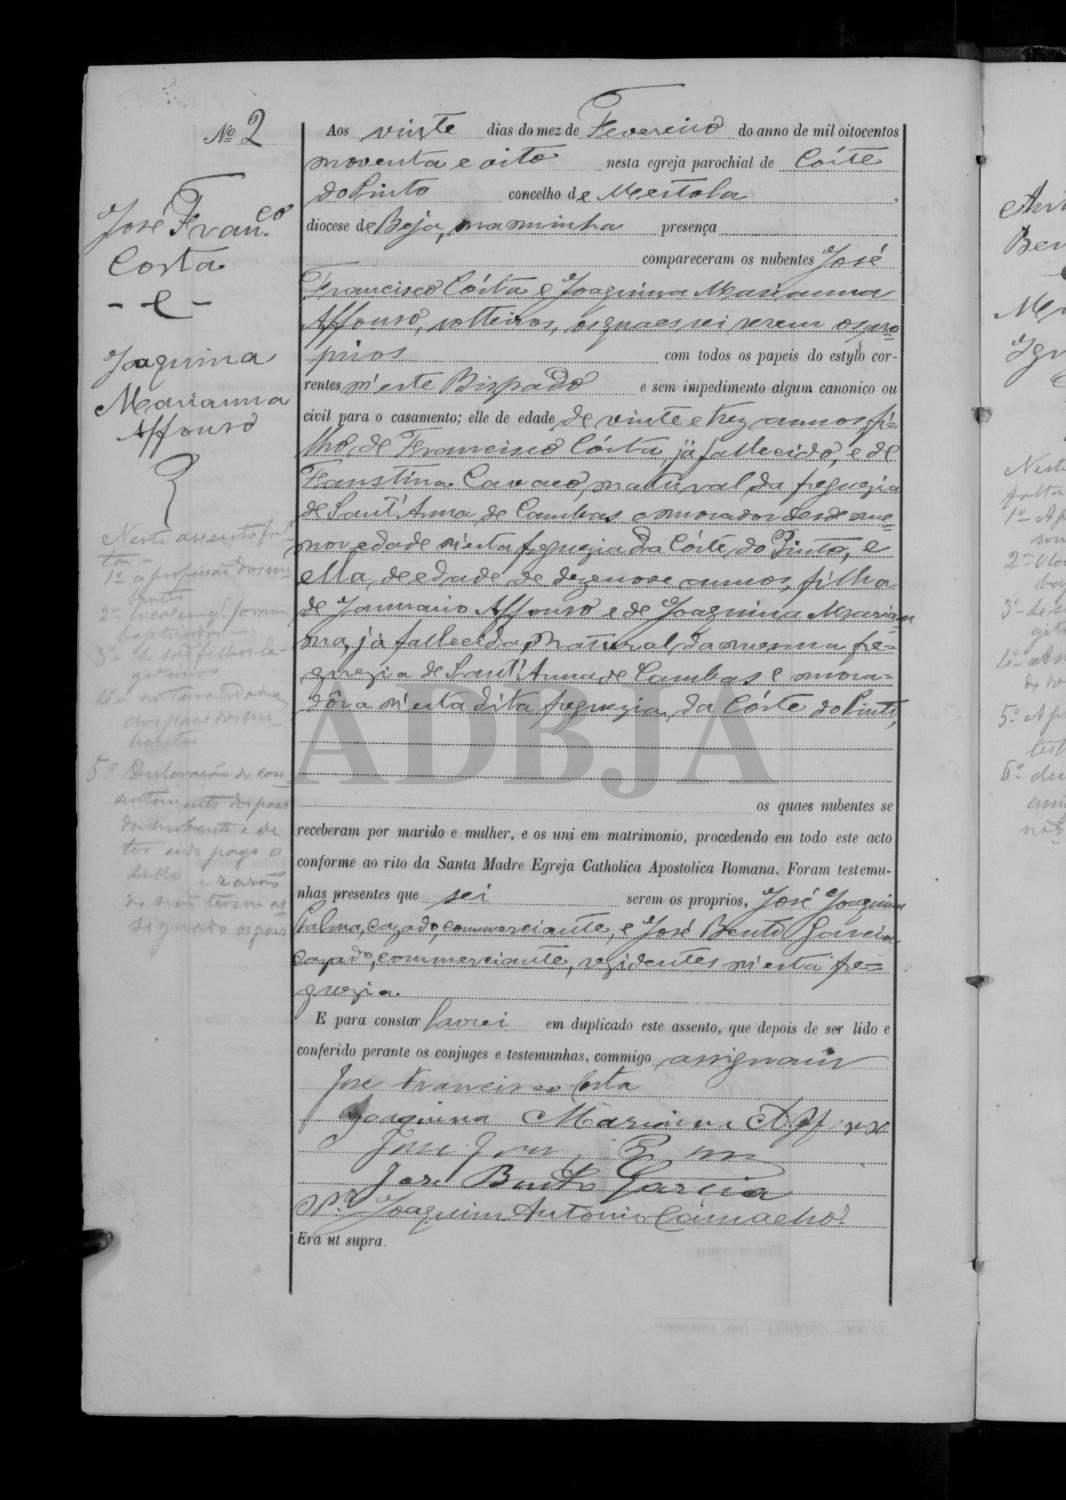 Nº 2
José Fran.co
Costa
- e -
Joaquina
Marianna
Affonso
Neste assento
1º a profissão dos
2º
baptisados
3º de são filhos le-
gitimos
4º a naturalidade
dos paes dos
5º Declaração do con-
sentimento dos paes
e de
ter sido pago o
sello e a razão
de não terem as-
signado os paes
Aos vinte dias do mez de Fevereiro do anno de mil oitocentos
noventa e oito nesta egreja parochial de Córte
do Pinto concelho de Mertola,
diocese de Beja, na minha presença
compareceram os nubentes José
Francisco Cósta e Joaquina Marianna
Affonso, solteiros, os quaes sei serem os pro-
prios com todos os papeis do estylo cor-
rentes n'este Bispado e sem impedimento algum canonico ou
civil para o casamento; elle de edade de vinte e trez annos, fi-
lho de Francisco Cósta, já fallecido, e de
Faustina Cavaco, natural da freguezia
de Sant'Anna de Cambas e morador desde me-
nor edade n'esta freguezia da Córte do Pinto, e
ella, de edade de dezenove annos, filha
de Januario Affonso e de Joaquina Marian-
na, já fallecida, natural da mesma fre=
guezia de Sant'Anna de Cambas e mora=
dôra n'esta dita freguezia da Córte do Pinto,
os quaes nubentes se
receberam por marido e mulher, e os uni em matrimonio, procedendo em todo este acto
conforme ao rito da Santa Madre Egreja Catholica Apostolica Romana. Foram testemu-
nhas presentes que sei serem os proprios, José Joaquim
Palma, cazado, commerciante, e José Bento Garcia
cazado, commerciante, rezidentes n'esta fre=
guezia.
E para constar lavrei em duplicado este assento, que depois de ser lido e
conferido perante os conjuges e testemunhas, commigo assignam
Jose Francisco Costa
Joaquina Mariana Affonso
Jose
Jose Bento Garcia
Pr. Joaquim Antonio Camacho.
Era ut supra.
ADBJA